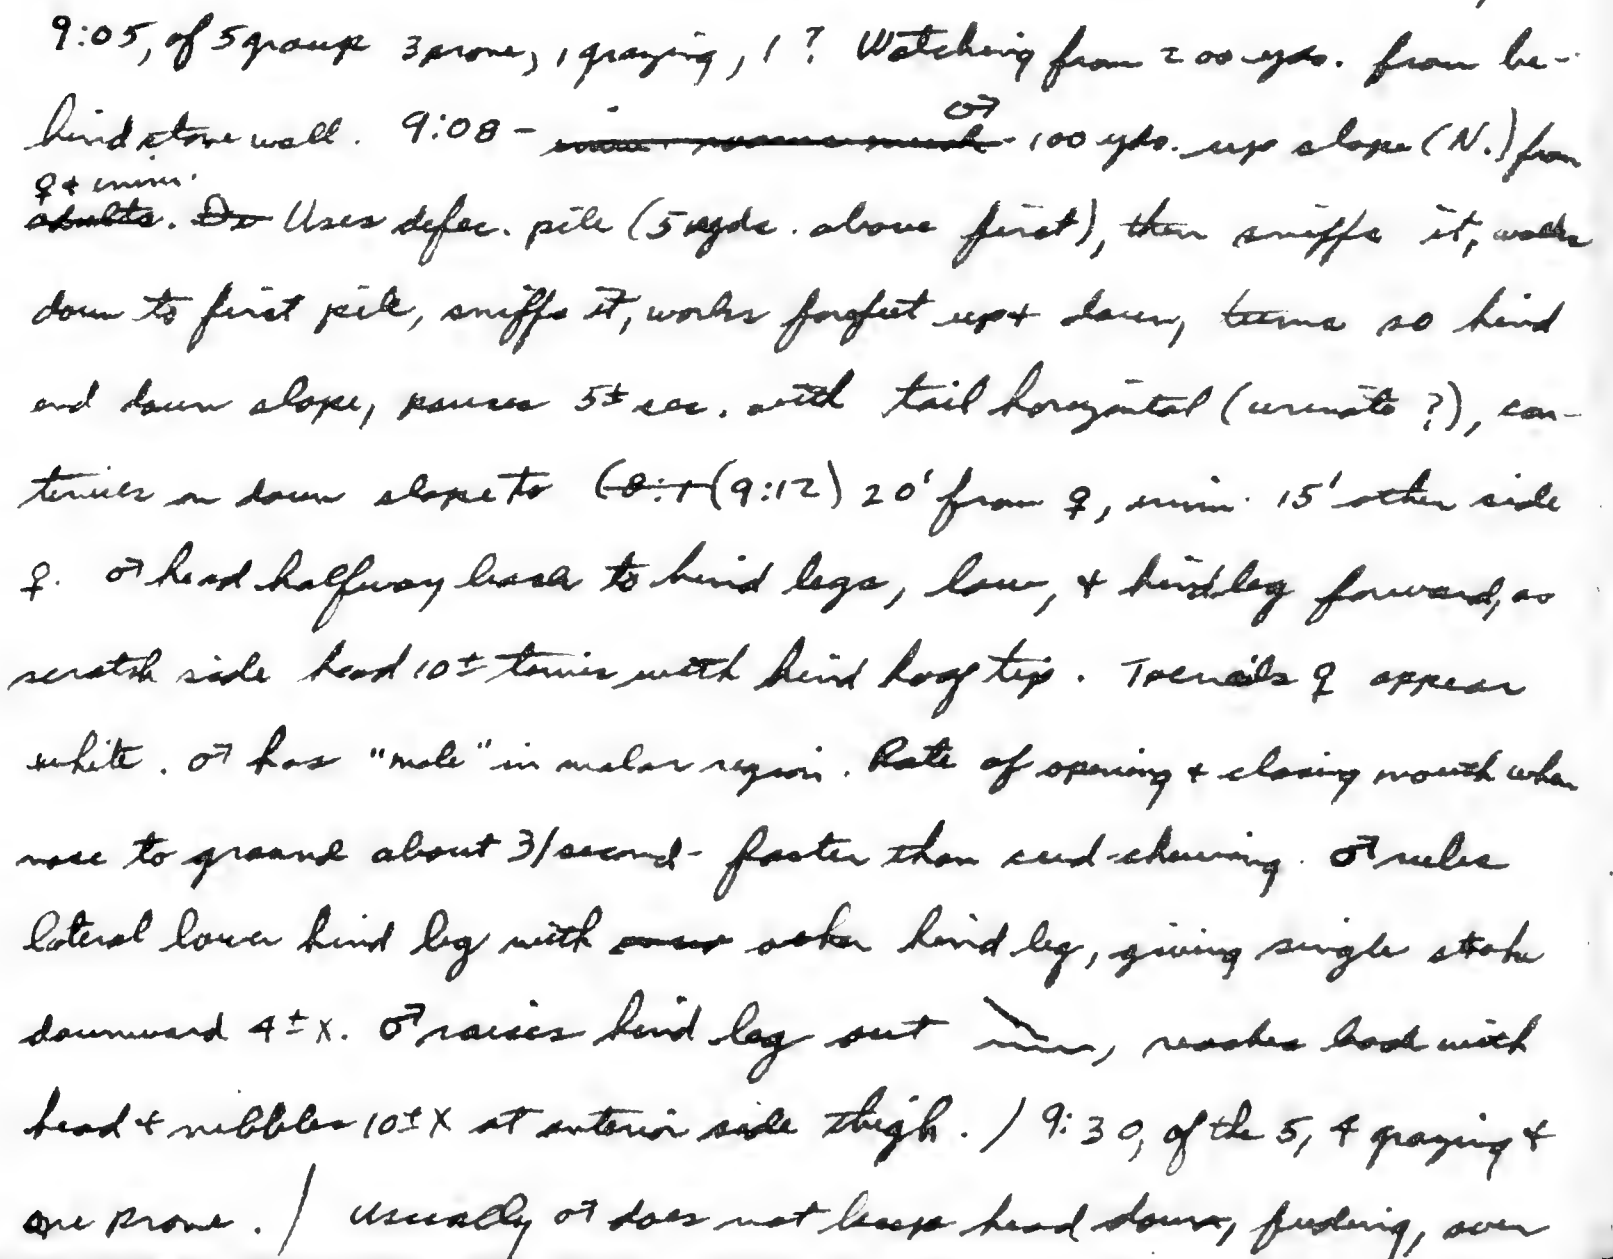 9:05, of 5 group 3 prone, 1 grazing, 1 ? Watching from 200 yds. from be-
hind stone wall. 9:08 - ♂ 100 yds. up slope (N.) from
♀ + imm.
adults. Uses defec. pile (5 yds. above first), then sniffs it, walks
down to first pile, sniffs it, works forefeet up + down, turns so hind
end down slope, pauses 5± sec. with tail horizontal (urinate ?), con-
tinues on down slope to (8:1 (9:12) 20' from ♀, imm. 15' other side
♀. ♂ head halfway back to hind legs, low, + hind leg forward, as
scratch side head 10± times with hind hoof tip. Toenails ♀ appear
white. ♂ has "mole" in malar region. Rate of opening + closing mouth when
nose to ground about 3/second - faster than cud-chewing. ♂ rubs
lateral lower hind leg with other hind leg, giving single stroke
downward 4± X. ♂ raises hind leg out, reaches back with
head + nibbles 10± X at anterior side thigh. / 9:30, of the 5, 4 grazing +
one prone. / Usually ♂ does not keep head down, feeding, over